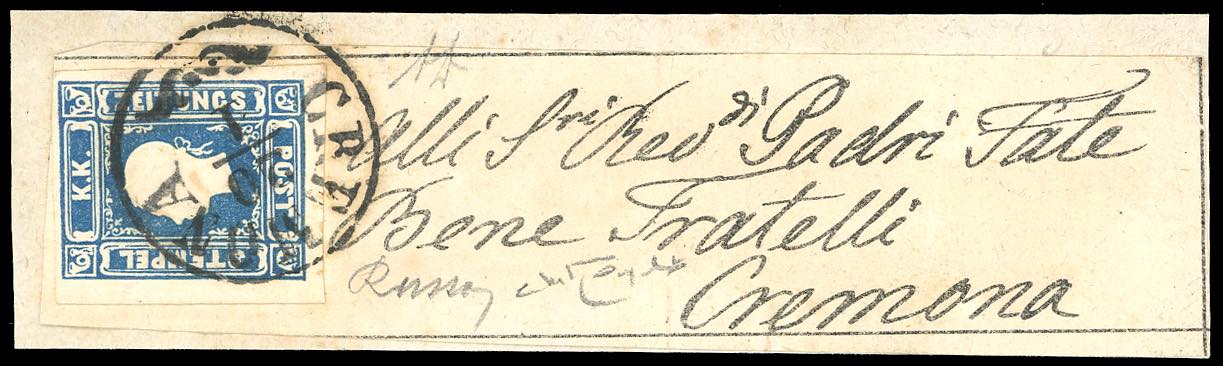 ZEITUNGS
K.K.
POST
STEMPEL
Alli S.ri Rev di Padri Fate
Bene Fratelli
Cremona